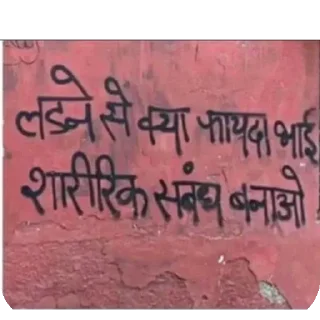 लडने से क्या फायदा भाई
शारीरिक संबंध बनाओ